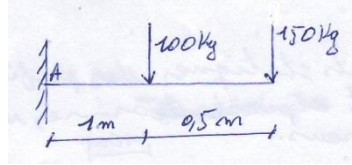 100Kg 150Kg
A
1m 0,5m